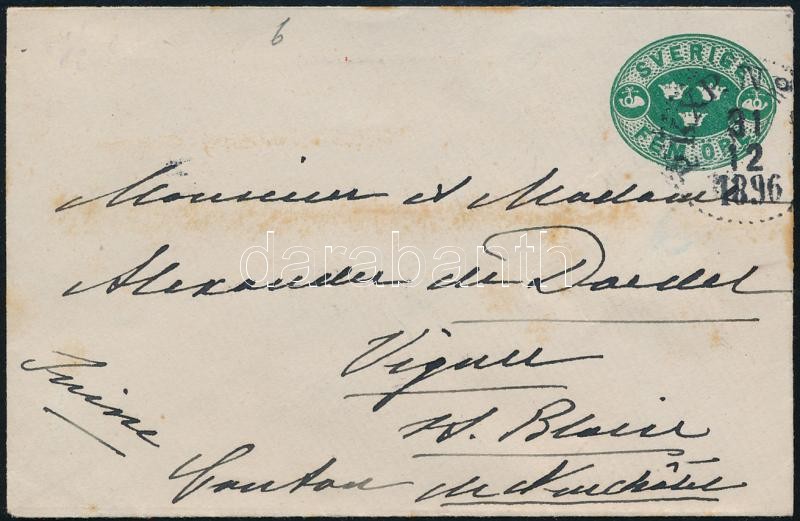 6
SVERIGE
FEM ÖRE
31
12
1896
Monsieur et Madame
Alexander de Dardel
darabanth
Vigner
St. Blaise
Suisse
Canton de Neuchâtel